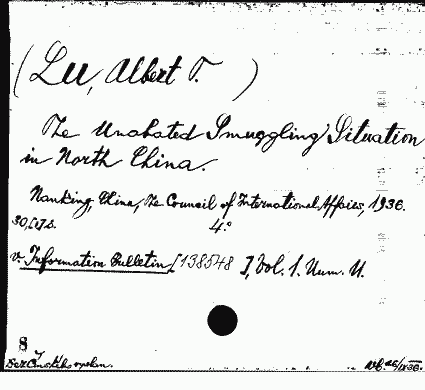 (Lu, Albert T. )
The Unabated Smuggling Situation
in North China.
Nanking, China, The Council of International Affairs, 1936.
30, [1] s. 4°
v. Information Bulletin [138548 I, Vol. 1. Num. 11.
8